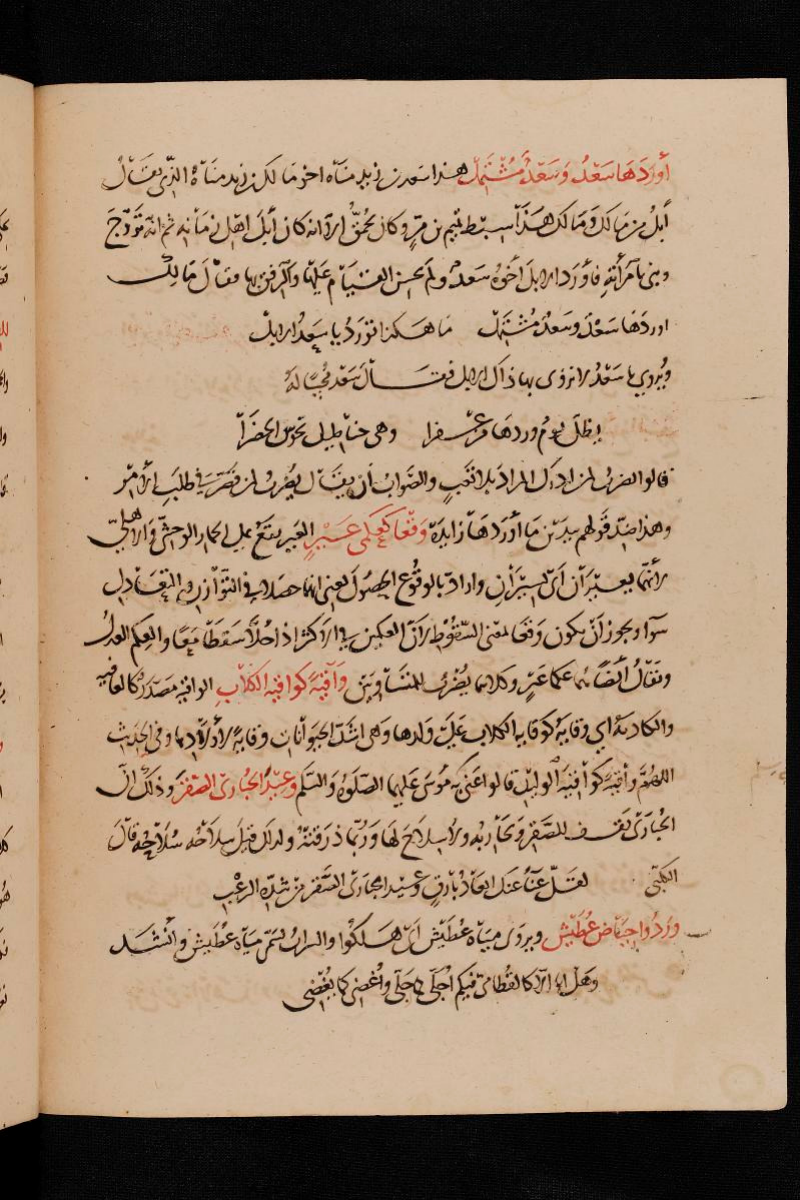 أَوْرَدَهَا سَعْدٌ وَسَعْدٌ مُشْتَمِلْ هذا سعد بن زيد مناة اخو مالك بن زيد مناة الذي يقال
آبل من مالك ومالك هذا سبط تميم بن مر وكان يحمق الا انه كان آبل اهل زمانه ثم انه تزوج
وبنى بامرأته فاورد الابل أخوه سعد ولم يحسن القيام عليها والرفق بها فقال مالك
اوردها سعد وسعد مشتمل ما هكذا تورد يا سعد الابل
ويروى يا سعد لا تروى بهاذاك الابل فقال سعد مجيبا له
يظل يوم وردها مزعفرا وهي خناطيل تجوس الخضرا
قالوا يضرب لمن ادرك المراد بلا تعب والصواب أن يقال يضرب لمن قصر في طلب الامر
وهذا ضد قولهم بيدين ما أوردها زايدة وَقَعَا كَعِكْمَىْ عَيْرٍ العير يقع على الحمار الوحشي والاهلي
لأنهما يعيران أى يسيران واراد بالوقوع الحصول يعنى انهما حصلا في التوازن والتعادل
سوآ ويجوز أن يكون وقعا بمعنى السقوط لان العكمين في الاكثر اذا حلا سقطا معا والعكم العدل
ويقال أيضا هما عكما عير وكلاهما يضرب للمتساويين وَاقِيَةً كَوَاقِيَةِ الكِلَابِ الواقية مصدر كالعافية
والكاذبة اي وقاية كوقاية الكلاب على ولدها وهى اشد الحيوانات وقاية لأولادها وفى الحديث
اللهم واقية كواقية الوليد قالوا عنى به موسى عليهما الصلوة والسلم وَعِيدُ الحُبَارَى الصَّقْرَ وذلك ان
الحبارى تقف للصقر وتحاربه ولا سلاح لها وربما ذرقته ولذلك قيل سلاحه سلاحه قال
الكلبى لقل غنآ عنك ايعاد بارق وعيد الحبارى الصقر من شدة الرعب
وَرَدُوا حِيَاضَ عُطَيْشٍ ويروى مياه عطيش أى هلكوا والسراب يسمى مياه عطيش وانشد
وهل انا الا كالقطامى فيكم اجلى كما جلى واغضى كما يغضى